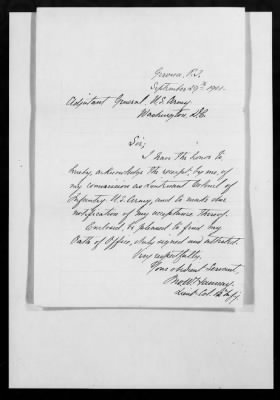 September 29th 1901.
Adjutant General, U.S. Army
Washington, D.C.
Sir;
I have the honor to
hereby, acknowledge the receipt, by me, of
my commission as Lieutenant Colonel of
Infantry, U.S. Army, and to make due
notification of my acceptance thereof.
Enclosed, be pleased to find my
Oath of Office, duly signed and attested.
Very respectfully,
Your obedient Servant,
Lieut. Col.